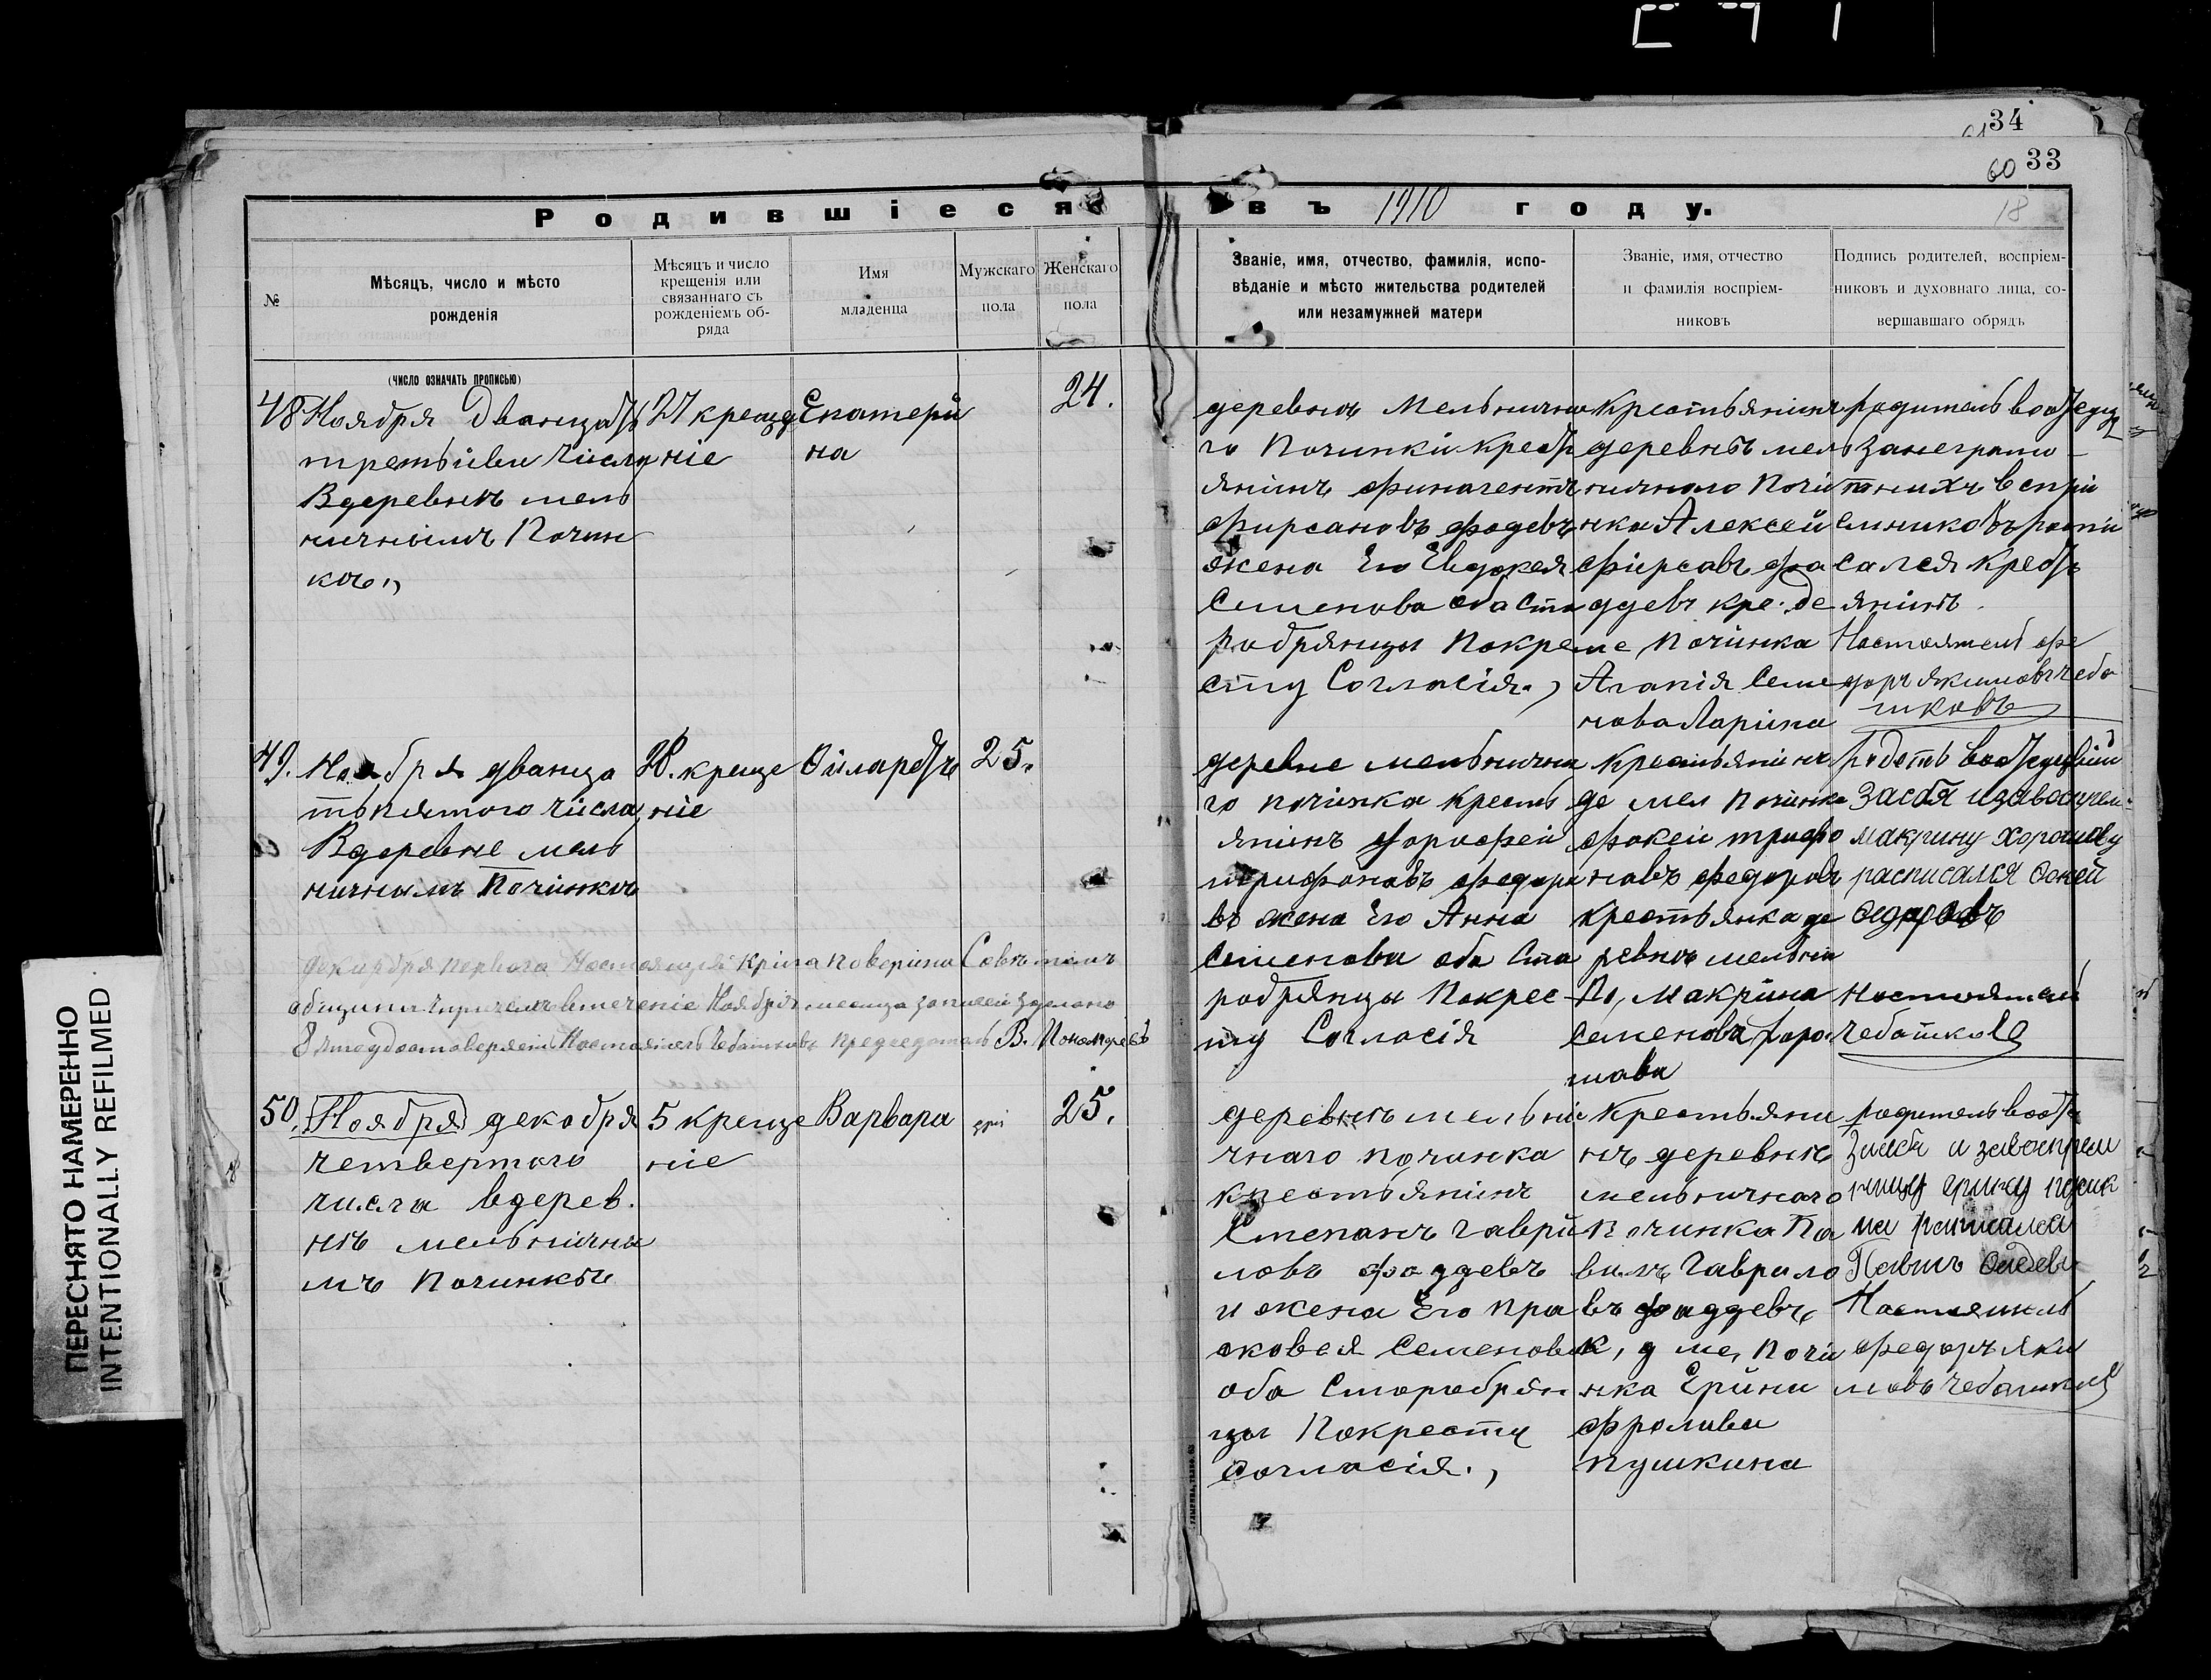 34
60 33
18
Родившіеся въ 1910 году.
№
Мѣсяцъ, число и мѣсто
рожденія
Мѣсяцъ и число
крещенія или
связаннаго съ
рожденіемъ об-
ряда
Имя
младенца
Мужскаго
пола
Женскаго
пола
Званіе, имя, отчество, фамилія, испо-
вѣданіе и мѣсто жительства родителей
или незамужней матери
Званіе, имя, отчество
и фамилія воспріем-
никовъ
Подпись родителей, воспріем-
никовъ и духовнаго лица, со-
вершавшаго обрядъ
(число означать прописью)
48 Ноября Дванцать
третьива числа
Вдеревнѣ мель
ничнымъ Почин
кѣ,,
27 креще
ніе
Екатери
на
24.
деревнѣ Мельнична
го Починки Крест
янинъ
Фирсановъ фадевъ
жена Его Евдокея
Семенова оба Ста
робрянцы Покре
сту Согласія.,
Крестьянинъ
деревнѣ мель
ничного Почи
нка Алексей
Фирсавъ фа
ддевъ кре. де
ме, Починка
Агапія Семе
нова Ларина
родитель
занеграмо
тныхъ воспри
емниковъ распи
сался крест
янинъ
Настоятель фе
доръ якимовъ чеба
шковъ
49. Ноября дванца
ть пятого числа,
Вдеревне мель
ничнымъ Починкѣ
28. креще
ніе
Филаретъ
25.
деревне мельнична
го починка крест
янинъ дорофей
трифоновъ федоро
въ жена Его Анна
Семенова оба Ста
робрянцы Покрес
ту Согласія
Крестьянинъ
де мел починка
фокей трифо
новъ федоровъ
крестьянка де
ревнѣ мельни
По, Макрина
Семенова Хоро
шава
засебя изавоспрем
макрину хорошаву
расписался Фокей
Федоровъ
Настоятель
Чебашковъ
Декабря первого Настоящая Книга поверина Советомъ
общины причемъ втеченіе Ноября месяца записей зделано
8 что удостоверяетъ Настоятель Чебашковъ председатель В. Пономаревъ
50. Ноября декабря
четвертого
числа вдерев.
нѣ мельнични
мъ Починкѣ
5 креще
ніе
Варвара
25.
деревнѣ мельни
чнаго починка
крестьянинъ
Степанъ Гаври
ловъ фаддевъ
и жена Его пра
сковея Семенова
оба Старобрян
цы Покресту
Согласія.,
Крестьяни
нъ деревнѣ
мельничнаго
Починка Па
вилъ Гаврило
въ фаддевъ,
К, д ме, Почи
нка Ерина
фролива
пушкина
родитель
засебя и завоспрем
ницу Ерину пушк
ну расписался
Павилъ Фадевъ
Настоятель
федоръ яки
мовъ Чебашковъ
ПЕРЕСНЯТО НАМЕРЕННО
INTENTIONALLY REFILMED